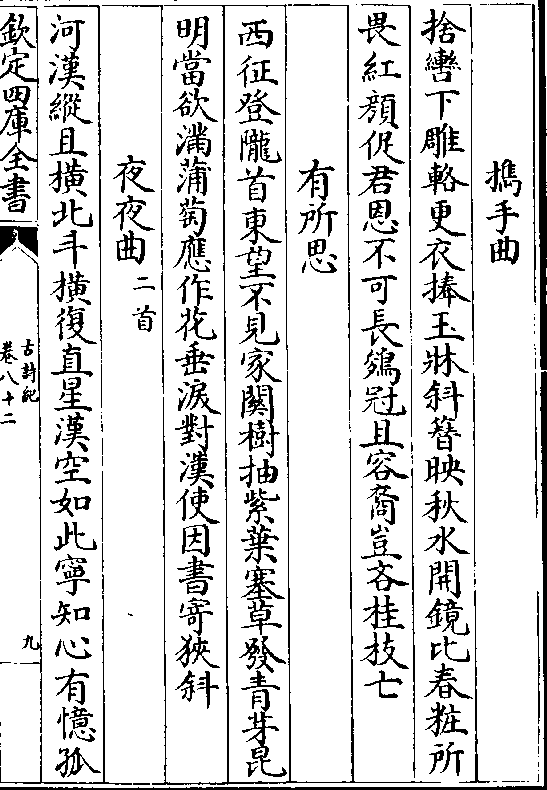 擕手曲
捨轡下雕輅更衣捧玉牀斜簪映秋水開鏡比春粧所
畏紅顔促君恩不可長鵁冠且容裔豈吝桂枝亡
有所思
西征登隴首東望不見家關樹抽紫葉塞草發青芽昆
明當欲滿蒲萄應作花垂淚對漢使因書寄狹斜
夜夜曲二首
河漢縱且橫北斗橫復直星漢空如此寧知心有憶孤
欽定四庫全書
古詩紀
卷八十二
九